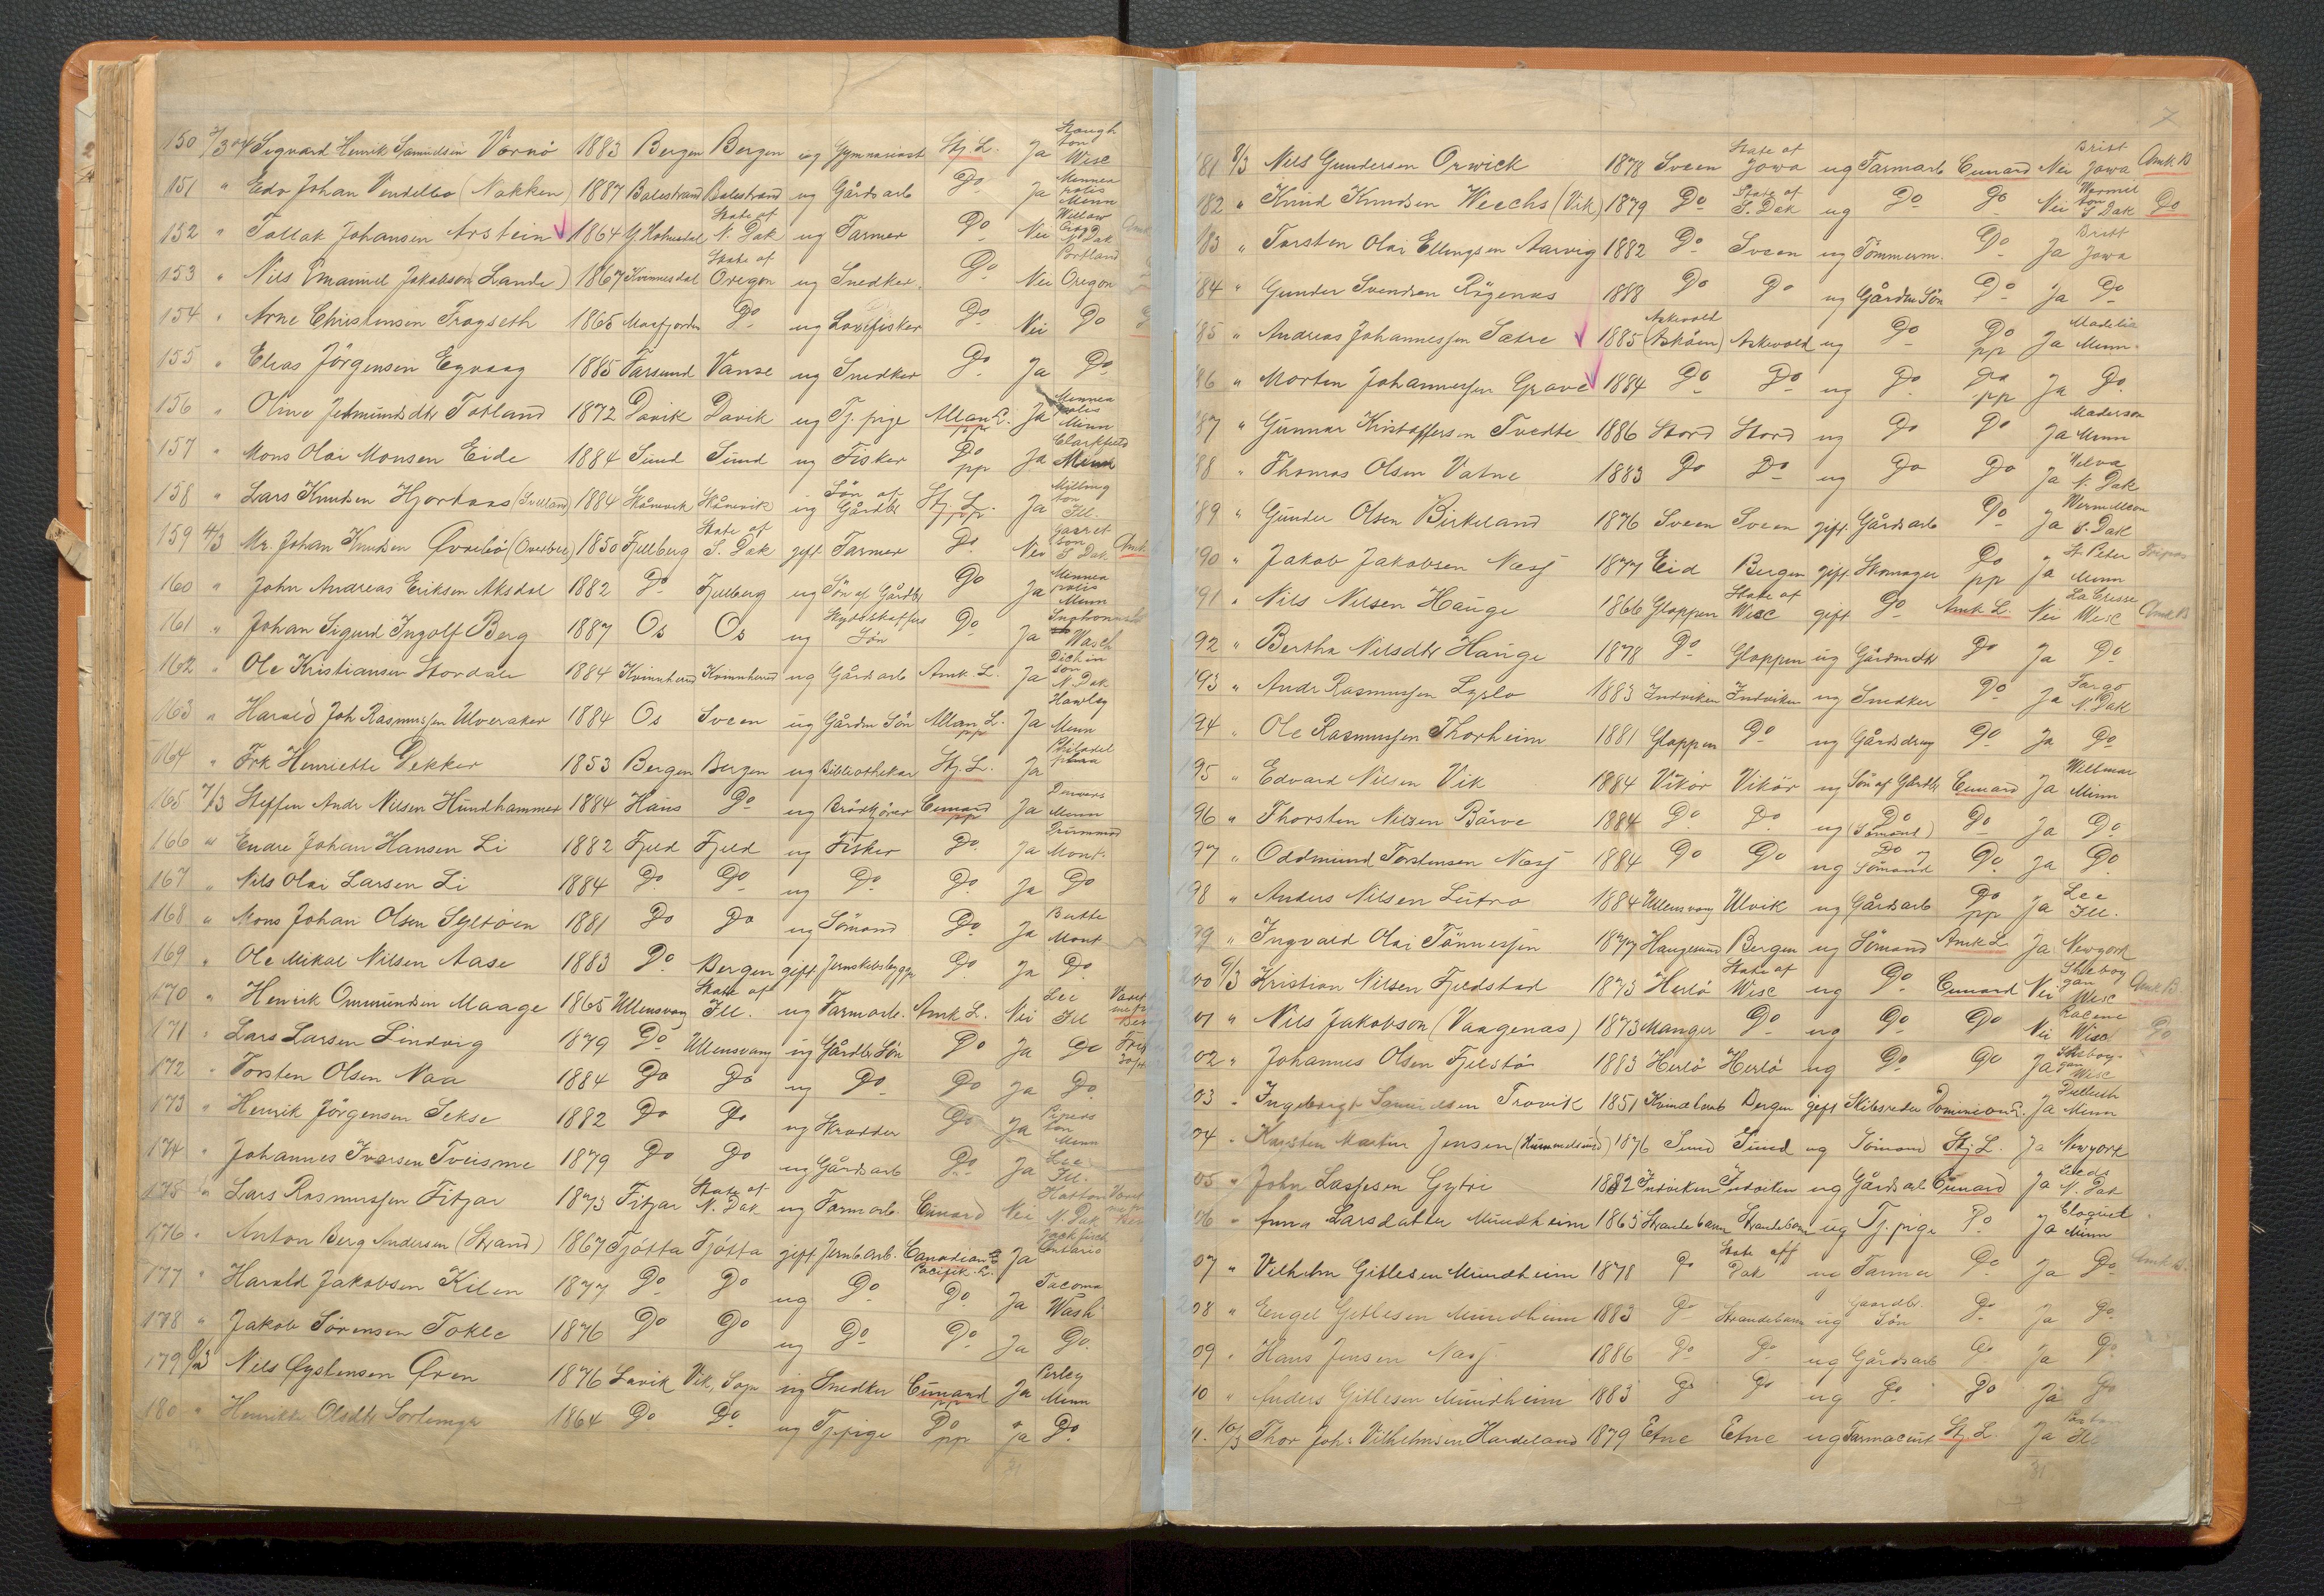 150 3/3 04 Sigvard Henrik Samuelsen Vernö 1883 Bergen Bergen ug Gymnasiast Stj L. Ja Stoughton Wisc
151 " Edv Johan Vendelbo (Nakken) 1887 Balestrand Balestrand ug Gårdsarb Do Ja Minneapolis Minn
152 " Tollak Johansen Arstein 1864 State of N. Dak ug Farmer Do Nei Willow City N Dak
153 " Nils Emanuel Jakobson (Lande) 1867 Kvinnesdal State of Oregon ug Snedker. Do Nei Portland Oregon
154 " Arne Christensen Tragseth 1865 Do ug Laxefisker Do Nei Do
155 " Elias Jörgensen Egvaag 1885 Farsund Vanse ug Snedker Do Ja Do
156 " Oline Jetmundsdtr Totland 1872 Davik Davik ug Tj. pige Allan L. pp Ja Minneapolis Minn
157 " Mons Olai Monsen Eide 1884 Sund Sund ug Fisker Do pp Ja Clarkfield Minn
158 " Lars Knudsen Hjortaas 1884 Skånevik Skånevik ug Sön af Gårdbr Stj. L. pp. Ja Millington Ill.
159 4/3 Mr. Johan Knudsen Övrebö (Overbee) 1850 Fjellberg State of S. Dak gift Farmer Do Nei Garretson S Dak. Amk.
160 " John Andreas Eriksen Aksdal 1882 Do Fjellberg ug Sön af Gårdbr Do Ja Minneapolis Minn
161 " Johan Sigurd Ingolf Berg 1887 Os Os ug Skydsskaffers Sön Do Ja Wasch
162 " Ole Kristiansen Stordale 1884 Kvinnherred Kvinnherred ug Gårdsarb Amk. L. Ja Dickinson N. Dak
163 " Harald Joh Rasmussen Ulveraker 1884 Os Sveen ug Gårdm Sön Allan L. pp Ja Hawley Minn
164 " Frk Henriette Dekker 1853 Bergen Bergen ug Bibliothekar Stj. L. Ja Philadelphia
165 7/3 Steffen Andr Nilsen Hundhammer 1884 Haus Do ug Brödkjörer Cunard pp Ja Minn
166 " Endre Johan Hansen Li 1882 Fjeld Fjeld ug Fisker Do. Ja Mont.
167 " Nils Olai Larsen Li 1884 Do Do ug Do Do Ja Do
168 " Mons Johan Olsen Syltöen 1881 Do Do ug Sömand Do Ja Butte Mont
169 " Ole Mikal Nilsen Aase 1883 Do Bergen gift Jernskibsbygger Do Ja Do
170 " Henrik Ommundsen Maage 1865 Ullensvang State of Ill. ug Farmarb. Amk L. Nei Lee Ill
171 " Lars Larsen Lindvig 1879 Do Ullensvang ug Gårdbr Sön Do Ja Do
172 " Torsten Olsen Naa 1884 Do Do ug Do Do Ja Do
173 " Henrik Jörgensen Sekse 1882 Do Do ug Skrædder Do Ja Minn
174 " Johannes Ivarsen Tveisme 1879 Do Do ug Gårdsarb Do Ja Lee Ill.
175 " Lars Rasmussen Fitjar 1873 Fitjar State of N. Dak ug Farmarb. Cunard Nei Hatton N. Dak
176 " Anton Berg Andersen (Strand) 1867 Tjötta Tjötta gift Jernb. arb. Canadian Pacifik L. Ja Ontario
177 " Harald Jakobsen Kilen 1877 Do Do ug Do Do Ja Tacoma Wash
178 " Jakob Sörensen Tokle 1876 Do Do ug Do Do. Ja Do.
179 8/3 Nils Öystensen Ören 1876 Lavik Vik, Sogn ug Snedker Cunard pp Ja Perley Minn
180 " Henrikke Olsdtr 1864 Do Do ug Tj. pige Do pp Ja Do
31
7
181 8/3 Nels Gundersen Orwick 1878 Sveen State of Jowa ug Farmarb Cunard Nei Britt Jowa Amk B
182 " Knud Knudsen Weechs (Vik) 1879 Do State of S. Dak ug Do Do Nei S Dak Do
83 " Torsten Olai Ellingsen Aarvig 1882 Do Sveen ug Tömmerm. Do Ja Britt Jowa
84 " Gunder Svendsen Rögenes 1888 Do Do ug Gårdm Sön Do Ja Do
85 " Andreas Johannessen Sætre 1885 Askevold (Asköen) Askevold ug Do Do pp Ja Madelia Minn.
86 " Morten Johannessen Grave 1884 Do Do ug Do Do pp Ja Do.
87 " Gunnar Kristoffersen Tvedte 1886 Stord Stord ug Do Do Ja Maderson Minn
88 " Thomas Olsen Vatne 1883 Do Do ug Do Do Ja Velva N. Dak
89 " Gunder Olsen Birkeland 1876 Sveen Sveen gift. Gårdsarb Do Ja S. Dak
90 " Jakob Jakobsen Næss 1877 Eid Bergen gift. Skomager Do pp Ja St. Peter Minn
91 " Nils Nilsen Hauge 1866 Gloppen State of Wisc gift Do Amk L. Nei La Crosse Wisc Amk B
92 " Bertha Nilsdtr Hauge 1878 Do Gloppen ug Gårdm dtr Do Ja Do
193 " Andr Rasmussen Lyslo 1883 Indviken Indviken ug Snedker Do Ja Fargo N. Dak
194 " Ole Rasmussen Thorheim 1881 Gloppen Do ug Gårdsdreng Do Ja Do
195 " Edvard Nilsen Vik 1884 Vikör Vikör ug Sön af Gårdbr Cunard Ja Willmar Minn
96 " Thorsten Nilsen Börve 1884 Do Do ug Do (Sömand) Do Ja Do
97 " Oddmund Torstensen Næss 1884 Do Do ug Do Sömand Do. Ja Do.
98 " Anders Nilsen Lutro 1884 Ullensvang Ulvik ug Gårdsarb Do pp Ja Lee Ill.
99 " Ingvald Olai Tönnessen 1877 Haugesund Bergen ug Sömand Amk L Ja Newyork
200 9/3 Kristian Nilsen Fjeldstad 1873 Herlö State of Wisc ug Do Cunard Nei Sheboygan Wisc Amk B.
201 " Nils Jakobson (Vaagenæs) 1873 Manger Do ug Do Do Nei Racine Wisc Do
202 " Johannes Olsen Fjelstö 1883 Herlö Herlö ug Do Do Ja Sheboygan Wisc
203 " Ingebrigt Samuelsen Trovik 1851 Bergen gift Skibsreder Dominion L. Ja Duluth Minn
204 " Karsten Martin Jensen (Hummelsund) 1876 Sund Sund ug Sömand Stj L. Ja Newyork
05 " John Lassesen Gytri 1882 Indviken Indviken ug Gårdsarb Cunard Ja Leeds N. Dak
06 " Anna Larsdatter Mundheim 1865 Strandebarm Strandebarm ug Tj. pige Do Ja Cloquet Minn
07 " Vilhelm Gitlesen Mundheim 1878 Do State off Dak ug Farmer Do Ja Do Amk B.
208 " Engel Gitlesen Mundheim 1883 Do Strandebarm ug Gaardbr. Sön Do Ja Do
09 " Hans Jensen Næss 1886 Do Do ug Gårdsarb Do Ja Do
10 " Anders Gitlesen Mundheim 1883 Do Do ug Do Do Ja Do
11. 10/3 Thor Joh: Vilhelmsen Hardeland 1879 Etne Etne ug Farmaceut Stj L. Ja Ill
31